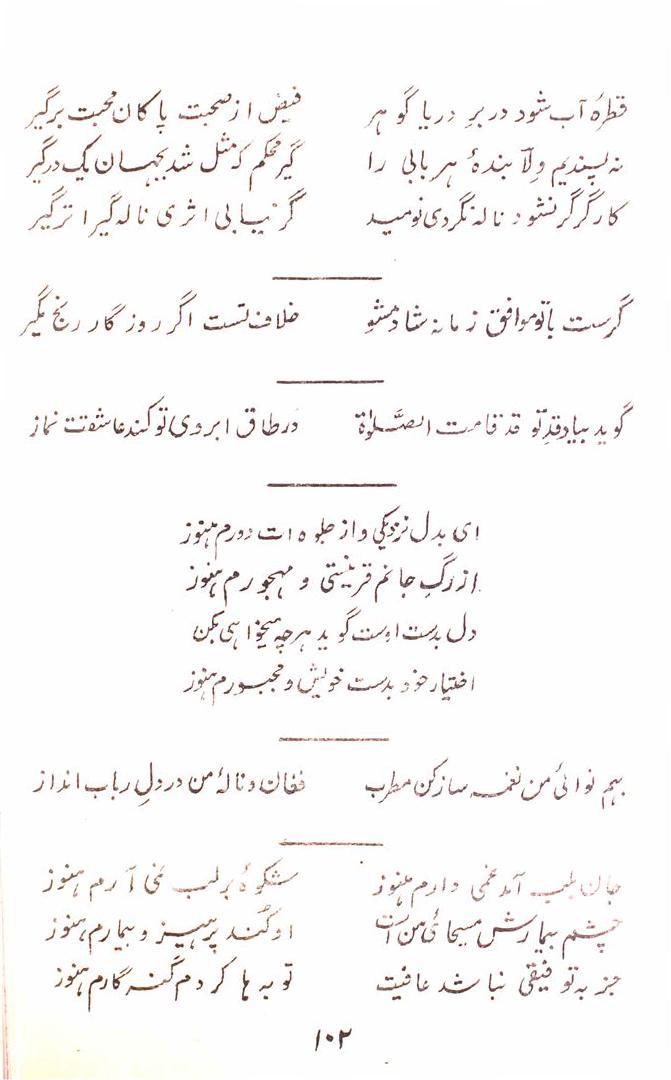 قطرهٔ آب شود در برِ دریا گوهر	فیض از صحبت پاکان محبت برگیر
نه پسندیم دلا بندهٔ هر بابی را	گیر محکم که مثل شد بجهان یک در گیر
کارگر گر نشود ناله نگردی نومید	گر نیابی اثری ناله گیرا تر گیر
گرست با تو موافق زمانه شاد مشو	خلاف تست اگر روزگار رنج مگیر
گوید بیاد قدِ تو قد قامت الصَّلوٰة	در طاق ابروی تو کند عاشقت نماز
ای بدل نزدیکی و از جلوه ات دورم هنوز
از رگِ جانم قرینستی و مهجورم هنوز
دل بدست اوست گوید هرچه میخواهی بکن
اختیار خود بدست خویش و مجبورم هنوز
بهم نوائیٔ من نغمه ساز کن مطرب	فغان و نالهٔ من در دلِ رباب انداز
جان بلب آمد غمی دارم هنوز	شکوهٔ بر لب نمی آرم هنوز
چشم بیمارش مسیحائی من است	او کُند پرهیز و بیمارم هنوز
جز به توفیقی نباشد عافیت	توبه ها کردم گنه گارم هنوز
۱۰۲